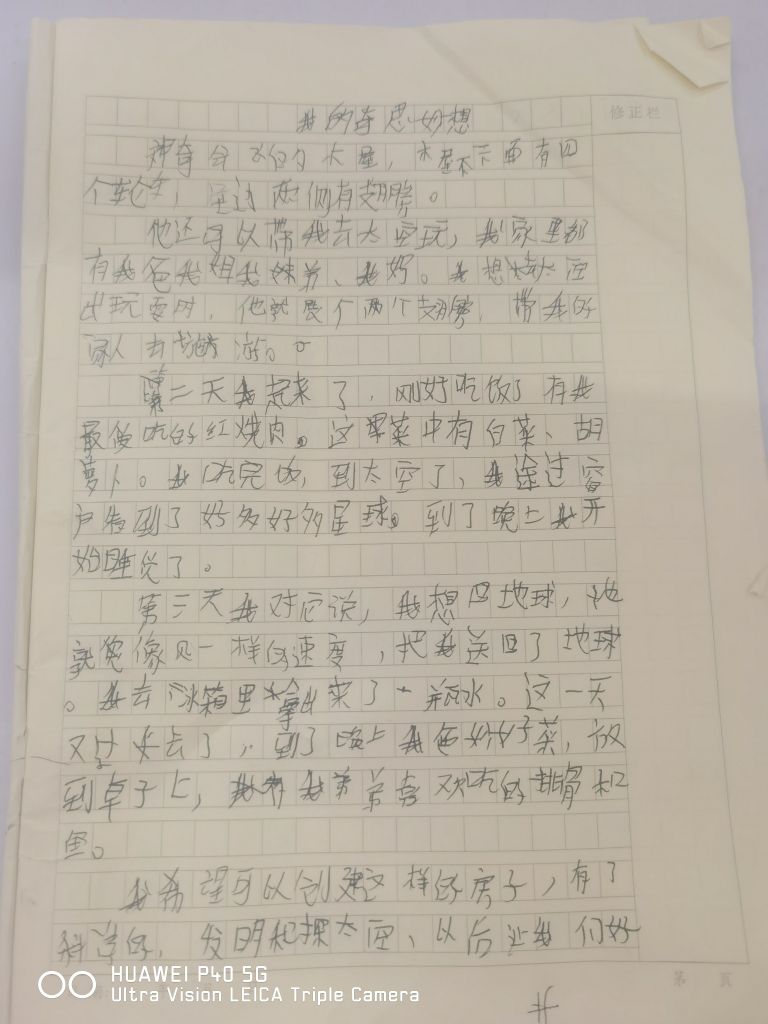 我的奇思妙想
修正栏
神奇 大星，木星 下面有四
个轮车，
两侧有翅膀。
他还可以带我去太空玩，我家里都
有我爸我姐我妹弟、我妈。我想去太空
出玩耍时，他就 个两个翅膀，带我的
家人去 游。
第二天我起来了，刚好吃饭了有我
最 吃的红烧肉。这 菜中有白菜、胡
萝卜。我吃完饭，到太空了，我 过窗
户 到了好多好多星球。到了晚上我开
始睡觉了。
第三天我对它说，我想回地球，他
就 像 一样的速度，把我送回了地球
。我去冰箱里拿出来了一瓶水。这一天
又 去了，到了晚上我爸 好菜，放
到卓子上，我 我弟弟喜欢吃的排骨和
鱼。
我希望可以创建这样的房子，有了
科学的，发明和探太空、以后让我们好
第 页
HUAWEI P40 5G
Ultra Vision LEICA Triple Camera